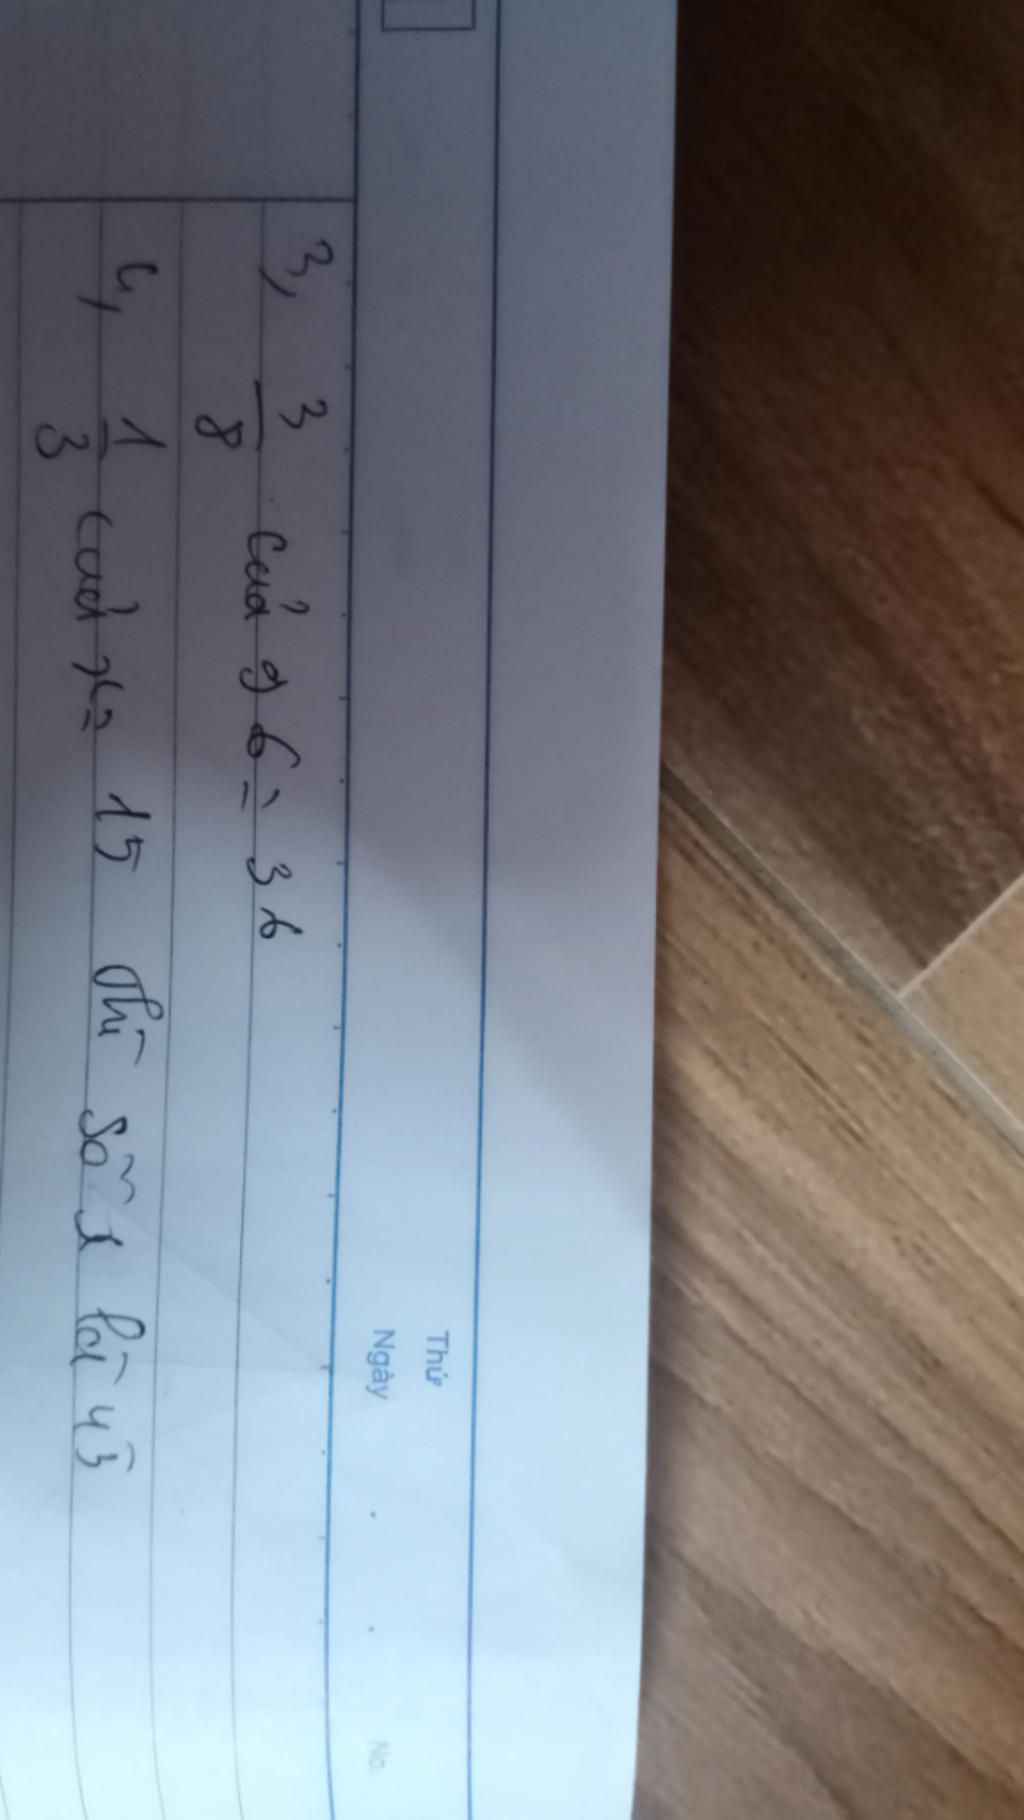 Thứ
Ngày
No.
3, 3/8 của 96 = 36
4, 1/3 của x = 15 thì số x là 45